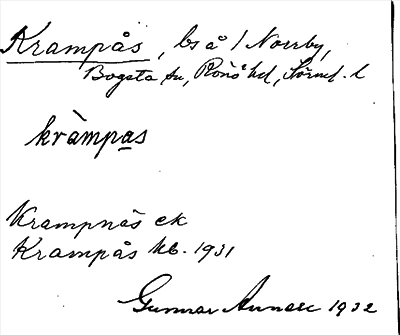 Krampås, ls å / Norrby,
Bogsta sn, Rönö hd, Södml. l
kràmpas
Krampnäs ek
Krampås kb. 1931
Gunnar 1932